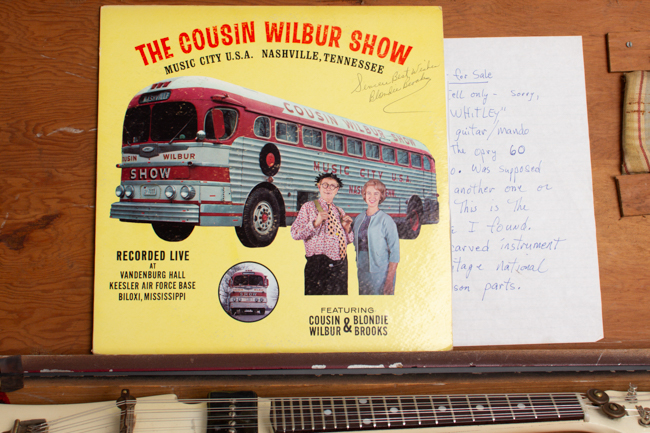 THE COUSIN WILBUR SHOW
MUSIC CITY U.S.A. NASHVILLE, TENNESSEE
Sincere Best Wishes
Blondie Brooks
COUSIN WILBUR SHOW
MUSIC CITY U.S.A.
NASH
COUSIN WILBUR
SHOW
RECORDED LIVE
AT
VANDENBURG HALL
KEESLER AIR FORCE BASE
BILOXI, MISSISSIPPI
FEATURING
COUSIN & BLONDIE
WILBUR BROOKS
for Sale
ell only - sorry,
WHITLEY"
guitar/mando
The opry 60
o. Was supposed
another one or
This is the
e I found.
carved instrument
tage national
son parts.